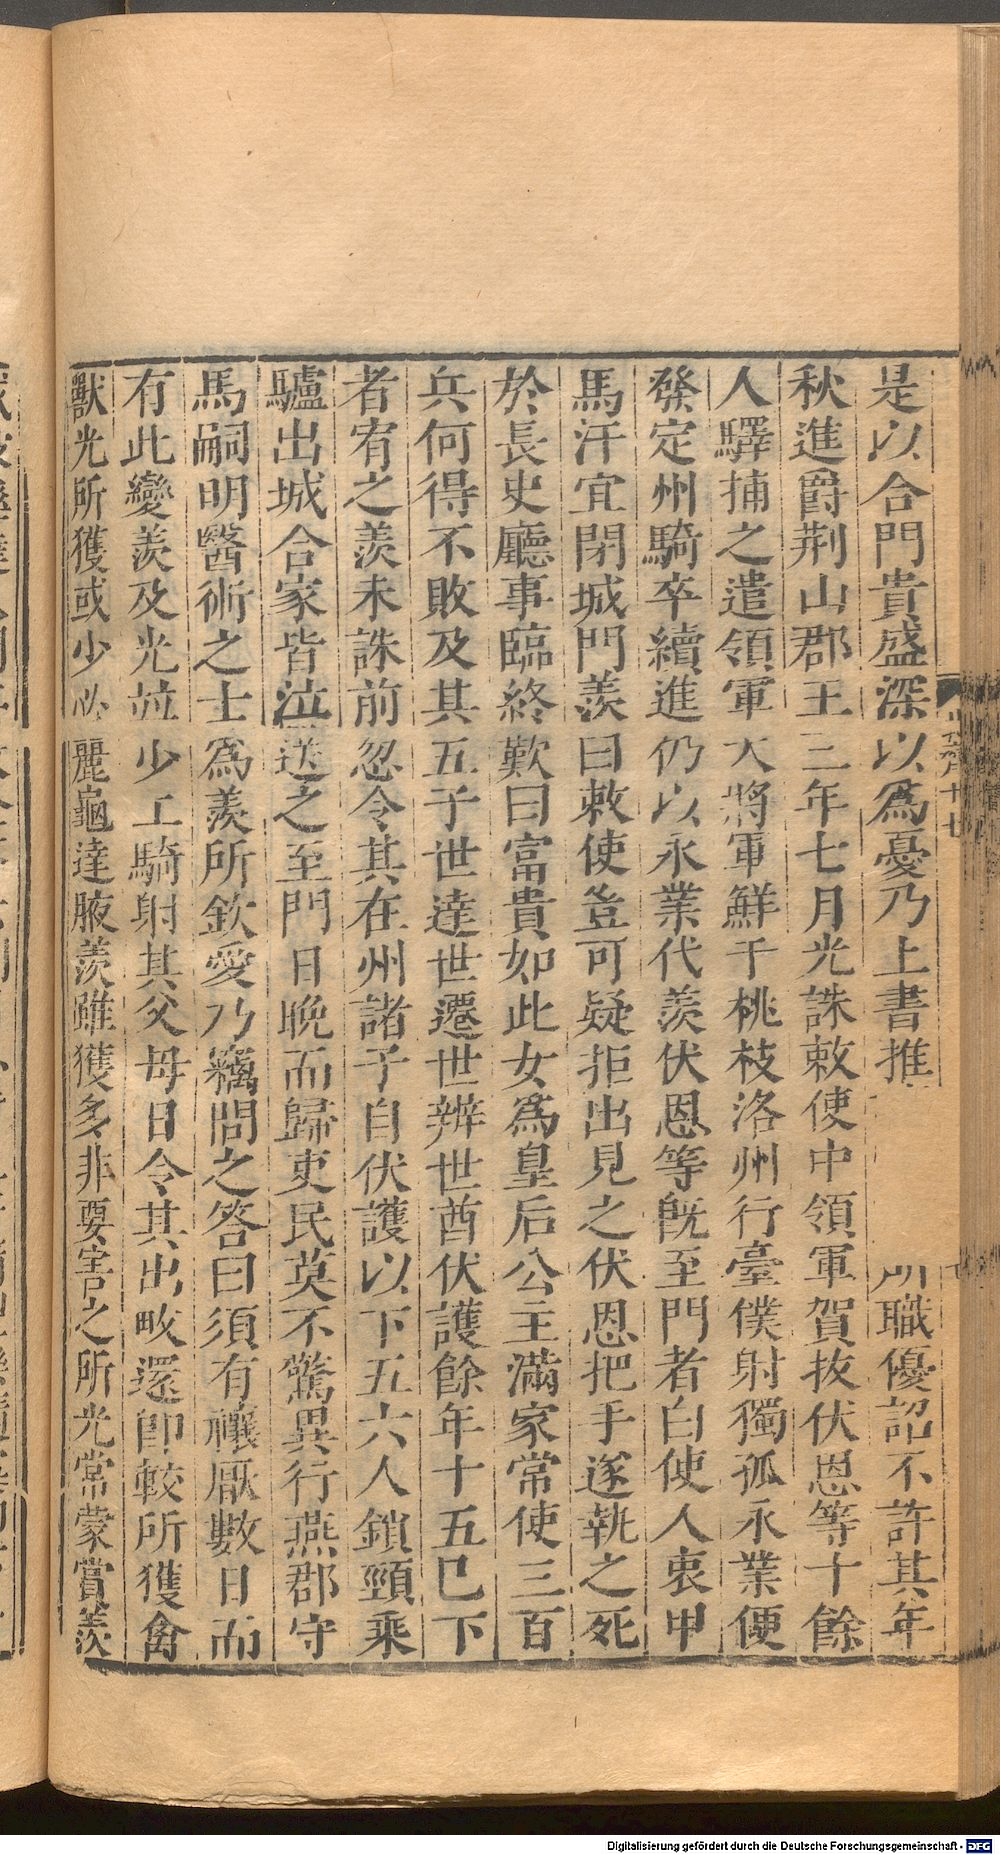 是以合門貴盛深以爲憂乃上書推所職優詔不許其年
秋進爵荆山郡王三年七月光誅敕使中領軍賀拔伏恩等十餘
人驛捕之遣領軍大將軍鮮于桃枝洛州行臺僕射獨孤永業便
發定州騎卒續進仍以永業代羨伏恩等旣至門者白使人衷甲
馬汗宜閉城門羨曰敕使豈可疑拒出見之伏恩把手遂執之死
於長史廳事臨終歎曰富貴如此女爲皇后公主滿家常使三百
兵何得不敗及其五子世達世遷世辨世酋伏護餘年十五巳下
者宥之羨未誅前忽令其在州諸子自伏護以下五六人鎖頸乘
驢出城合家皆泣送之至門日晚而歸吏民莫不驚異行燕郡守
馬嗣明醫術之士爲羨所欽愛乃竊問之答曰須有禳厭數日而
有此變羨及光並少工騎射其父母日令其出畋還卽較所獲禽
獸光所獲或少必麗龜達腋羨雖獲多非要害之所光常蒙賞羨
十七
Digitalisierung gefördert durch die Deutsche Forschungsgemeinschaft - DFG